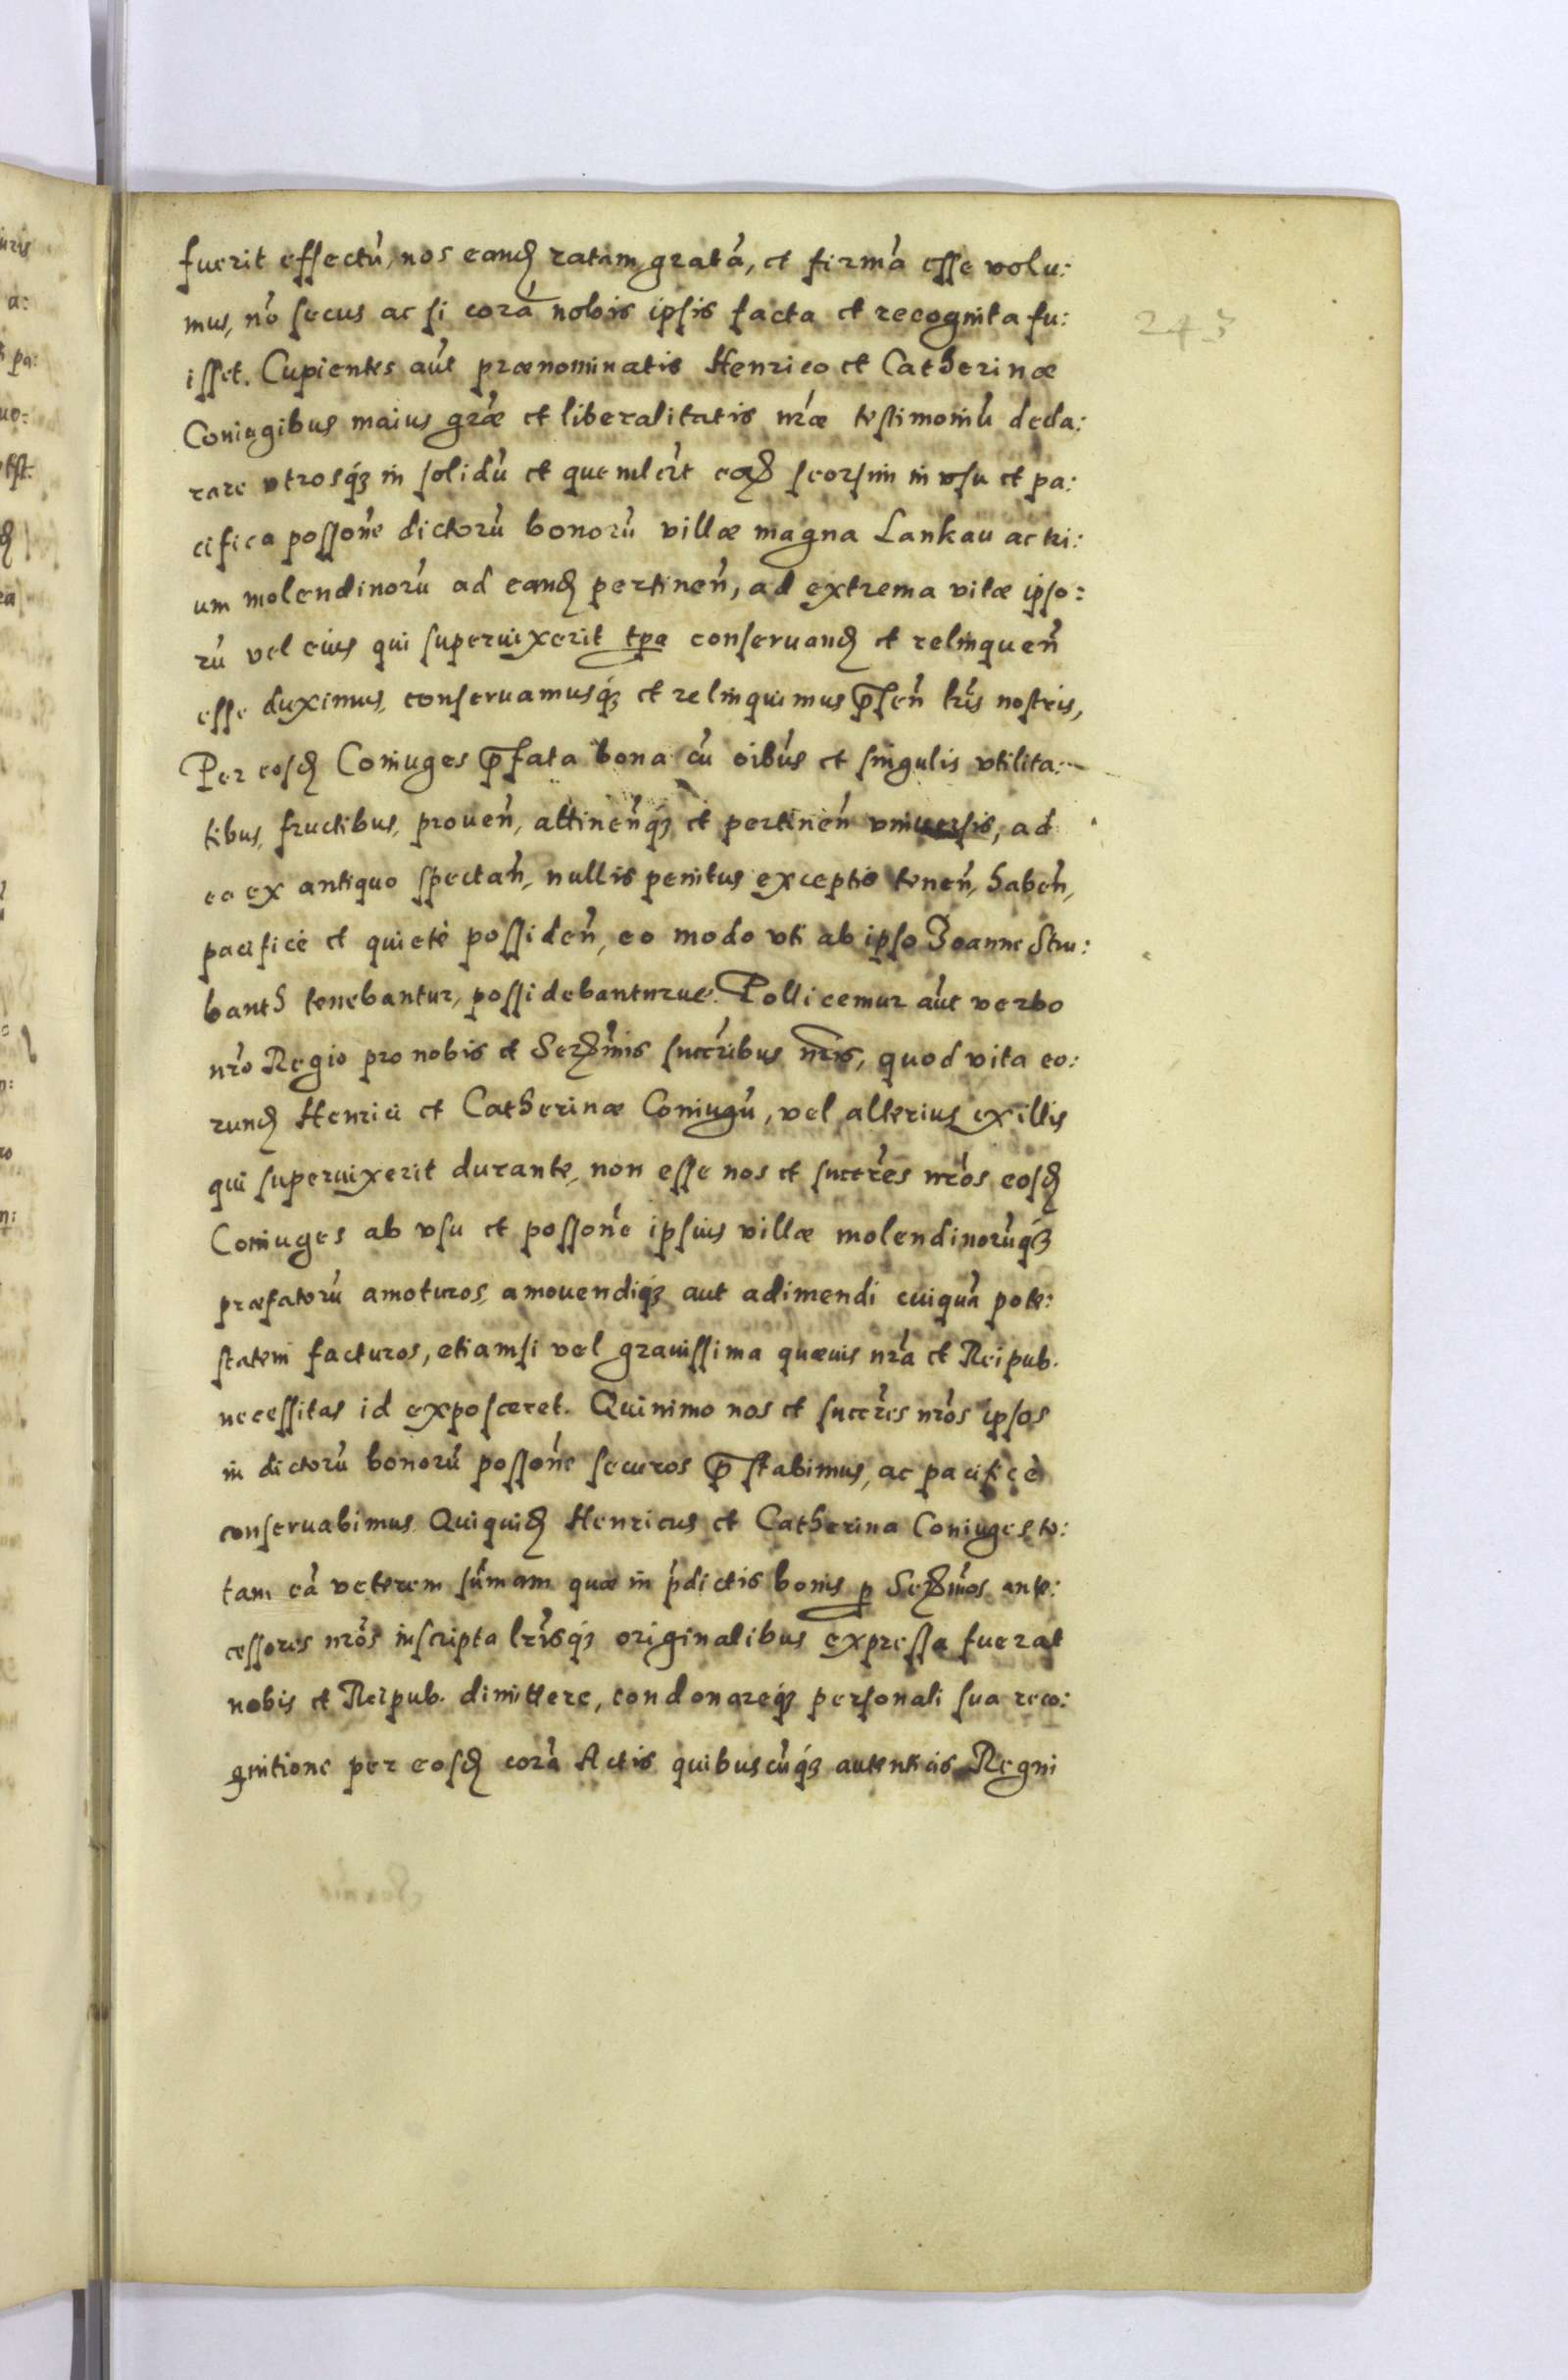 fuerit effectú, nos eand ratam, gratá, et firmá esse volu:
mus, nó secus ac si corá nobis ipsis facta et recognita fu:
isset. Cupientes aút prænominatis Henrico et Catherinæ
Coniugibus maius gráæ et liberalitatis nráæ testimoniú decla:
rare utrosq́ꝫ in solidú et quemlért eoꝝ seorsim in usu et pa:
cifica possoné dictorú bonorú villæ magna Lankau ac tri:
um molendinorú ad eand pertineń, ad extrema vitæ ipso:
rú vel eius qui superuixerit tpa conseruand et relinqueń
esse duximus, conseruamusq́ꝫ et relinquimus p̄seń lris nostris,
Per eosd Coniuges p̄fata bona cú oibús et singulis utilita:
tibus, fructibus, proueń, attineńq́ꝫ et pertineń uniuersis, ad
ea ex antiquo spectań, nullis penitus exceptis teneń, habeń,
pacificè et quietè possideń, eo modo uti ab ipso Joanne Stru:
banth tenebantur, possidebanturue. Pollicemur aút verbo
nró Regio pro nobis et Serꝫmis succribus nris, quod vita eo:
rund Henrici et Catherinæ Coniugú, vel alterius ex illis
qui superuixerit durante, non esse nos et succrés nrós eosd
Coniuges ab usu et possoné ipsius villæ molendinorúq́ꝫ
præfatorú amoturos, amouendiq́ꝫ aut adimendi cuiquá pote:
statem facturos, etiamsi vel grauissima quæuis nrá et Reipub.
necessitas id exposceret. Quinimo nos et succrés nrós ipsos
in dictorú bonorú possoné securos p̄stabimus, ac pacificè
conseruabimus. Quiquid Henricus et Catherina Coniuges to:
tam eá veterem súmam quæ in ṕdictis bonis p Serꝫmos ante:
cessores nrós inscripta lrisq́ꝫ originalibus expressa fuerat
nobis et Reipub. dimittere, condonareq́ꝫ personali sua reco:
gnitione per eosd corá Actis quibuscúq́ꝫ autenticis Regni
243